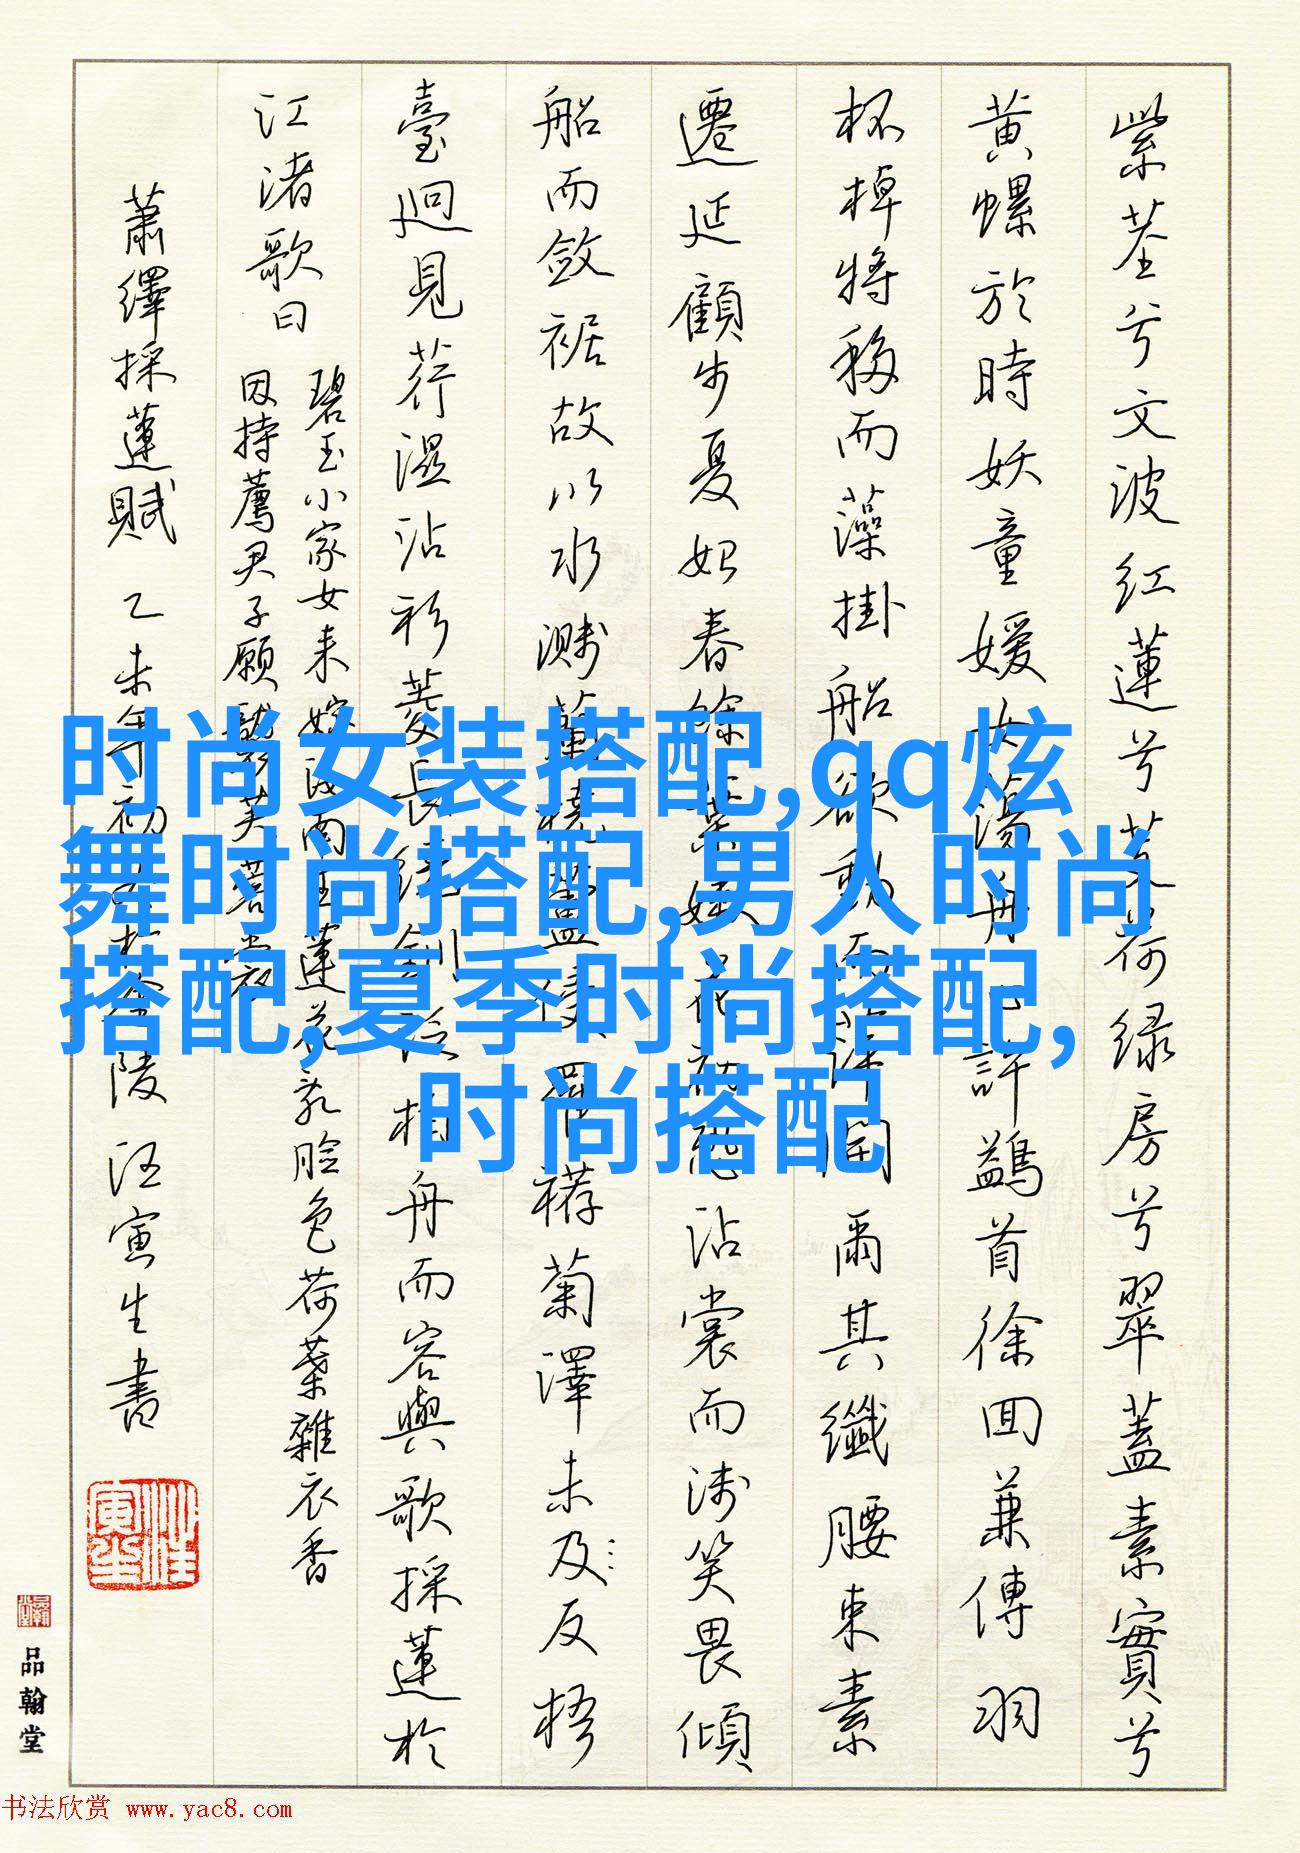 紫茎兮文波红蓮兮芰荷绿房兮翠蓋素實兮
黄螺於時妖童媛女蕩舟心許鷁首徐回兼傳羽
杯棹将移而藻掛船欲動而萍開爾其纖腰束素
遷延顧步夏始春餘葉嫩花初恐沾裳而浅笑畏傾
船而斂裾故以水溅蘭橈蘆侵羅菊澤未及反梧
臺迴見荇濕沾衫菱長繞釧泛柏舟而容與歌採蓮於
江渚歌曰
碧玉小家女来嫁汝南王蓮花乱臉色荷葉雜衣香
因持薦君子願襲芙蓉裳
蕭繹採蓮賦 乙未年初於金陵汪寅生書
汪寅生
品翰堂
书法欣赏 www.yac8.com
时尚女装搭配,qq炫
舞时尚搭配,男人时尚
搭配,夏季时尚搭配,
时尚搭配